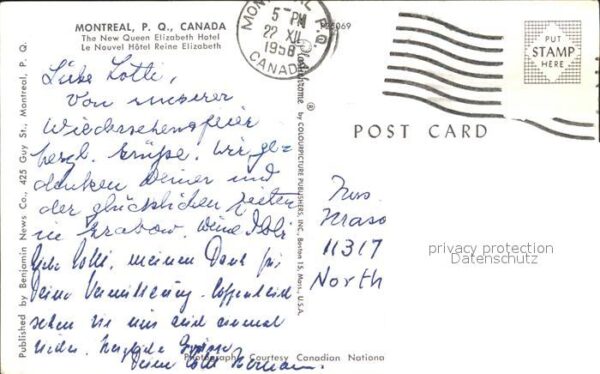 MONTREAL, P. Q., CANADA
The New Queen Elizabeth Hotel
Le Nouvel Hôtel Reine Elizabeth
MONTREAL P.Q.
5 PM
22 XII
1958
CANADA
PUT
STAMP
HERE
POST CARD
Published by Benjamin News Co., 425 Guy St., Montreal, P. Q.
Plastichrome ® by COLOURPICTURE PUBLISHERS, INC., Boston 15, Mass., U.S.A.
Liebe Lotti,
Von unserer
Wiedersehensfeier
herzl. Grüße. Wir ge-
denken Deiner und
der glücklichen Zeiten
in Krakow. Deine
Liebe Lotti, meinen Dank für
Deine Vermittlung. Hoffentlich
sehen wir uns einmal
wieder. Herzliche Grüsse
Dein Hermann.
Mrs.
11317
North
privacy protection
Datenschutz
Photography Courtesy Canadian Nationa